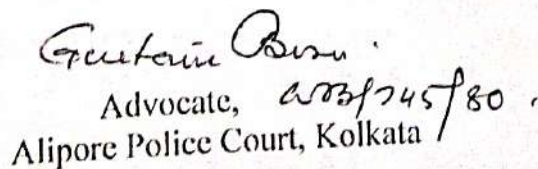 Gautam Basu.
Advocate, WB/745/80.
Alipore Police Court, Kolkata